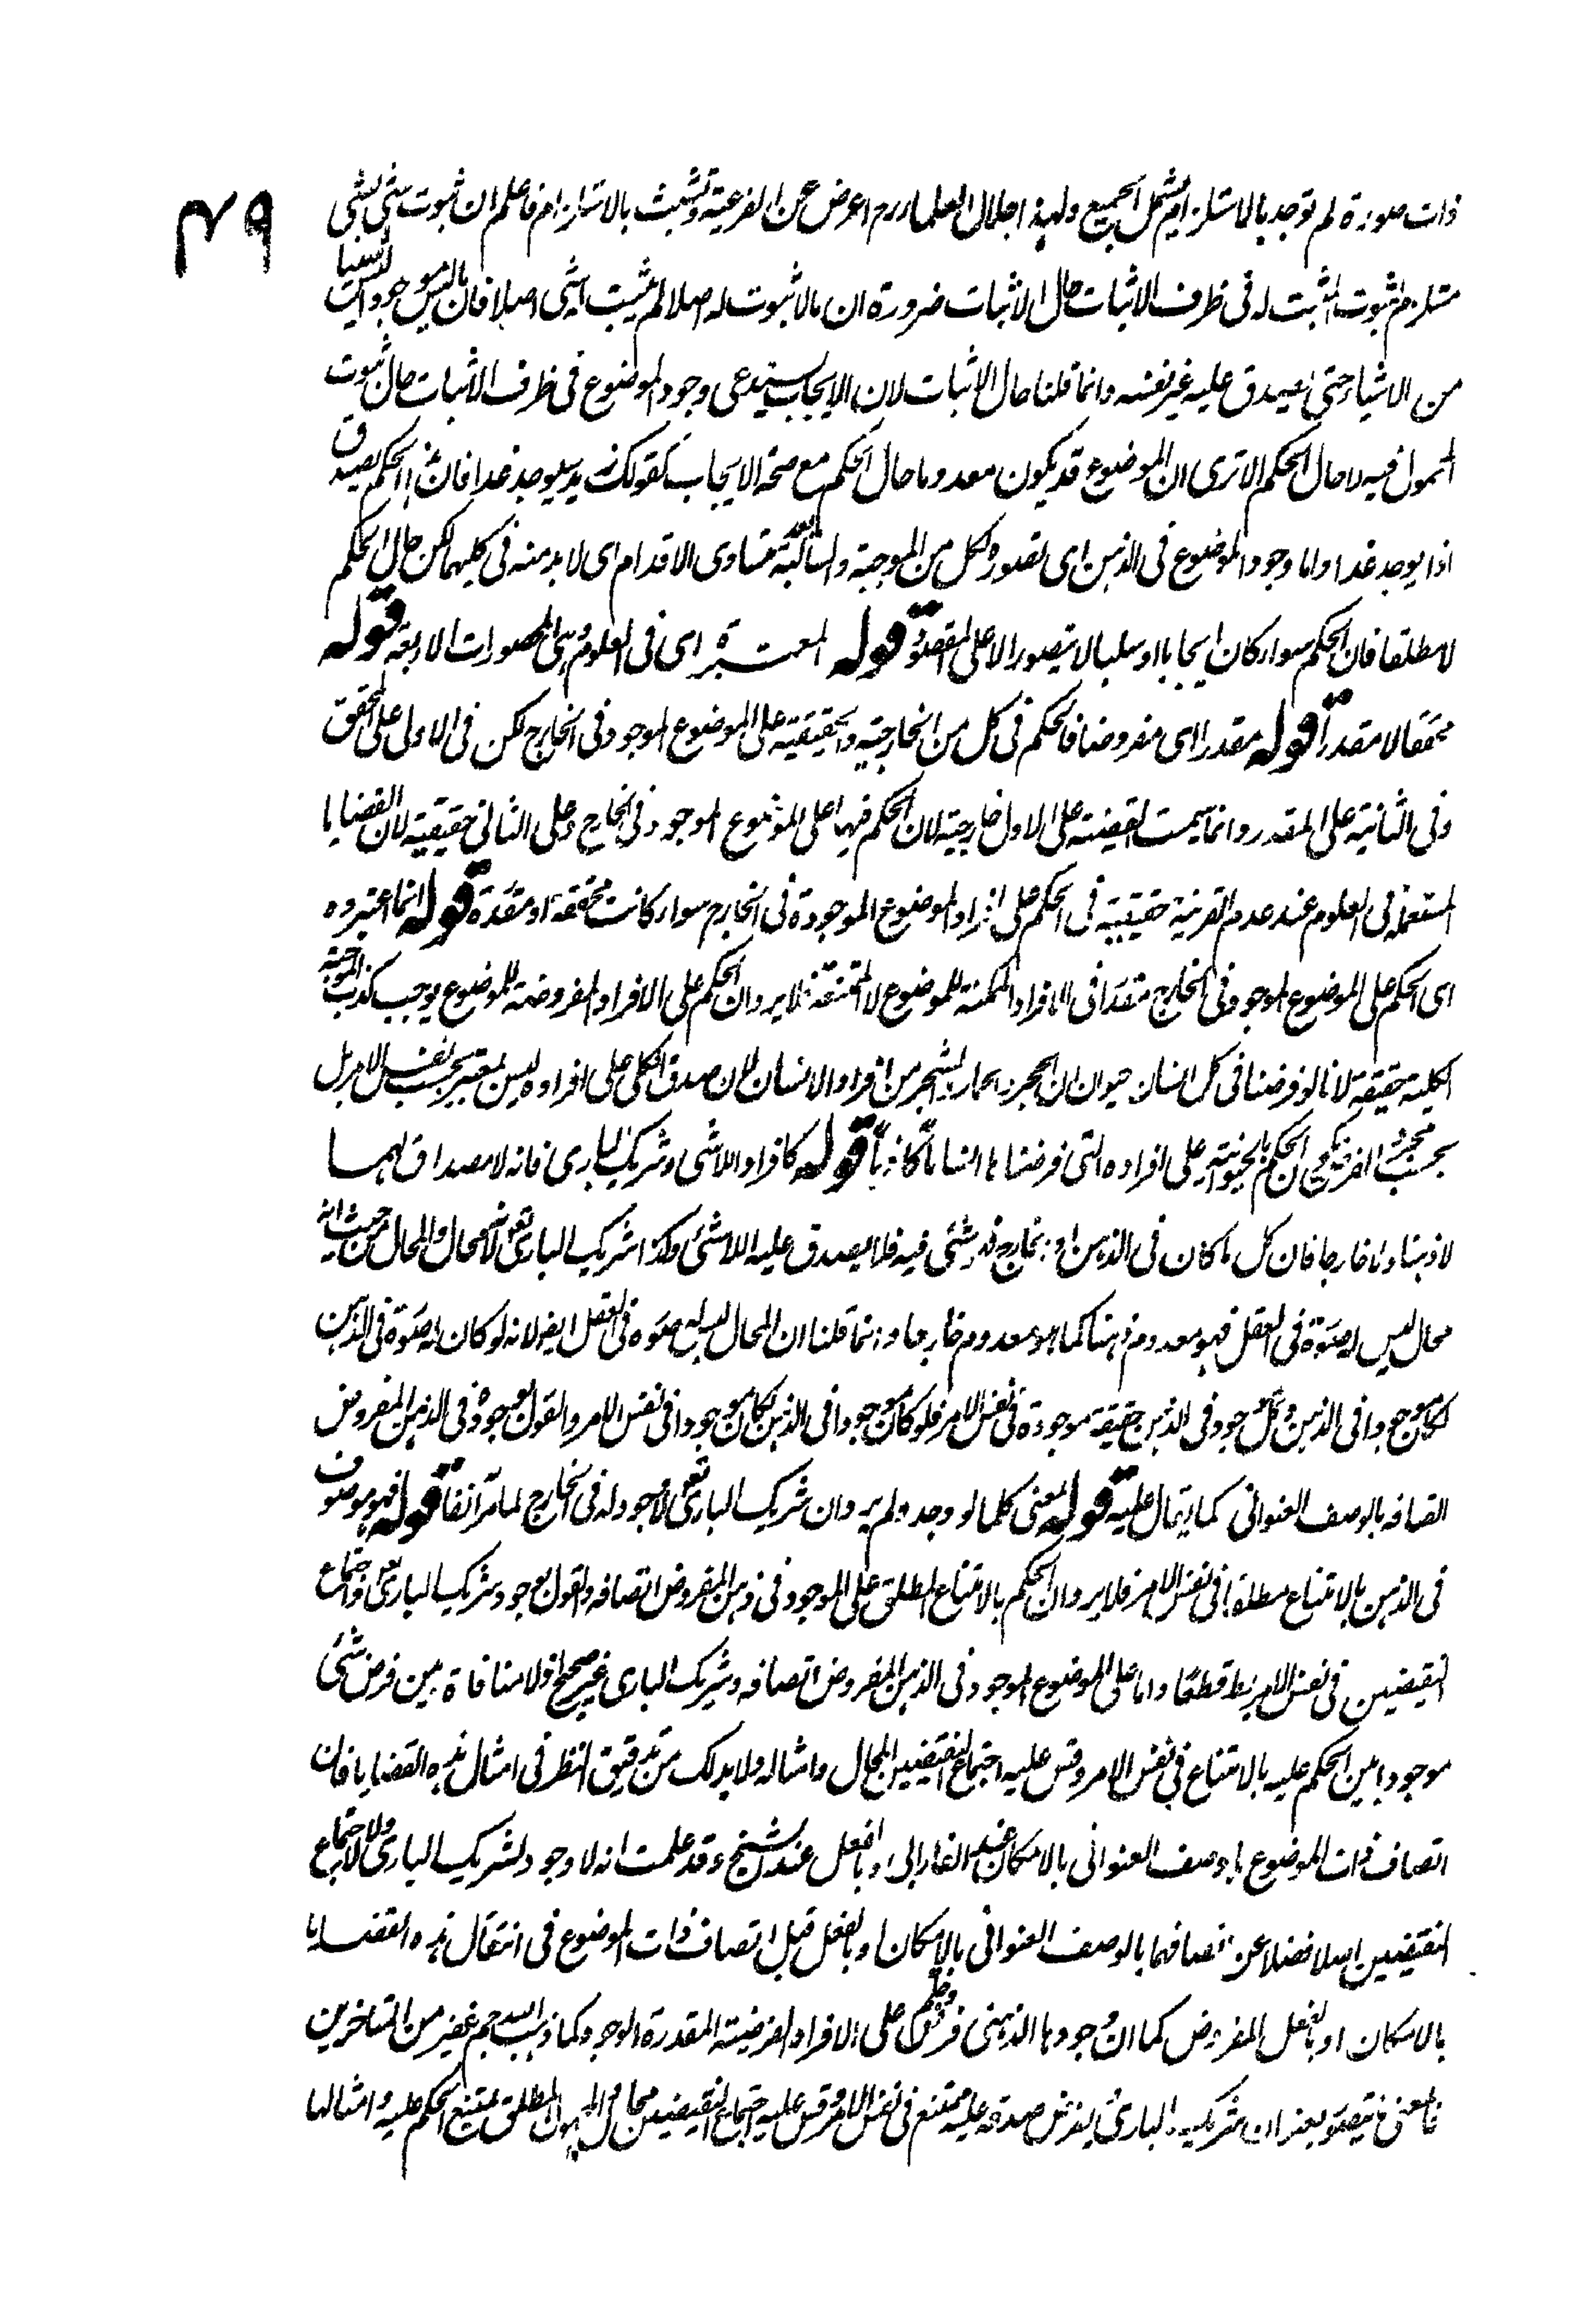 ٤٩
ذات صورة لم توجد بالاستلزام يشمل الجميع ولهذا جلال العلماء رح اعرض عن الفرعية وتشبث بالاستلزام فاعلم ان ثبوت شئ لشئ
مستلزم لثبوت المثبت له فى ظرف الاثبات حال الاثبات ضرورة ان مالا ثبوت له اصلا لم يثبت له شئ اصلا فان ما ليس موجودا ليس شيئا
من الاشياء حتى يصدق عليه غير نفسه وانما قلنا حال الاثبات لان الايجاب يستدعى وجود الموضوع فى ظرف الاثبات حال ثبوت
المحمول فيه لا حال الحكم الا ترى ان الموضوع قد يكون معدوما حال الحكم مع صحة الايجاب كقولك زيد سيوجد غدا فان هذا الحكم يصدق
اذا يوجد غدا واما وجود الموضوع فى الذهن اى تصوره لكل من الموجبة والسالبة متساوى الاقدام اى لا بد منه فى كليهما لكن حال الحكم
لا مطلقا فان الحكم سواء كان ايجابا او سلبا لا يتصور الا على المتصور قوله المعتبرة اى فى العلوم هى المحصورات الاربعة قوله
محققا لا مقدرا قوله مقدرا اى مفروضا فالحكم فى كل من الخارجية والحقيقية على الموضوع الموجود فى الخارج لكن فى الاولى على المحقق
وفى الثانية على المقدر وانما سميت القضية على الاول خارجية لان الحكم فيها على الموضوع الموجود فى الخارج وعلى الثانى حقيقية لان القضايا
المستعملة فى العلوم عند عدم القرينة حقيقية فى الحكم على افراد الموضوع الموجودة فى الخارج سواء كانت محققة او مقدرة قوله انما اعتبروه
اى الحكم على الموضوع الموجود فى الخارج مقدرا فى الافراد الممكنة للموضوع لا الممتنعة فلا يرد ان الحكم على الافراد المفروضة للموضوع يوجب كذب الموجبة
الكلية حقيقة لانا لو فرضنا فى كل انسان حيوان ان الحجر والشجر من افراد الانسان لان صدق الكلى على افراده ليس بمعتبر بحسب نفس الامر بل
بحسب مجرد الفرض يكون الحكم بالحيوانية على افراده التى فرضناها انسانا كاذبا قوله كافراد اللاشئ وشريك البارى فانه لا مصداق لهما
لا ذهنا ولا خارجا فان كل ما كان فى الذهن او الخارج فهو شئ فيه فلا يصدق عليه اللاشئ وكذا شريك البارى تعالى لانه محال والمحال من حيث انه
محال ليس له صورة فى العقل فهو معدوم ذهنا كما هو معدوم خارجا وانما قلنا ان المحال ليس له صورة فى العقل ايضا لانه لو كان له صورة فى الذهن
لكان موجودا فى الذهن وكل موجود فى الذهن حقيقة موجودة فى نفس الامر فلو كان موجودا فى الذهن لكان موجودا فى نفس الامر والقول بوجوده فى الذهن المفروض
اتصافه بالوصف العنوانى كما يقال عليه قوله بمعنى كلما لو وجد ولم يرد ان شريك البارى تعالى لا وجود له فى الخارج لما مر آنفا قوله فهو موصوف
فى الذهن بالامتناع مطلقا فى نفس الامر فلا يرد ان الحكم بالامتناع المطلق على الموجود فى ذهن المفروض اتصافه والقول بوجود شريك البارى تعالى واجتماع
النقيضين فى نفس الامر باطل قطعا واما على الموضوع الموجود فى الذهن المفروض اتصافه وشريك البارى غير صحيح اذ لا منافاة بين فرض شئ
موجودا وبين الحكم عليه بالامتناع فى نفس الامر وقس عليه اجتماع النقيضين المحال وامثاله ولا بد لك من تدقيق النظر فى امثال هذه القضايا فان
اتصاف ذات الموضوع بالوصف العنوانى بالامكان عند الفارابى او بالفعل عند الشيخ وقد علمت انه لا وجود لشريك البارى ولا لاجتماع
النقيضين اصلا فضلا عن اتصافهما بالوصف العنوانى بالامكان او بالفعل قبل اتصاف ذات الموضوع فى امثال هذه القضايا
بالامكان او بالفعل المفروض كما ان وجودها الذهنى فرضى على الافراد الفرضية المقدرة الوجود كما ذهب اليه جم غفير من المتاخرين
فالمعنى ما يتصور بعنوان شريك البارى يفرض صدقه عليه ممتنع فى نفس الامر وقس عليه اجتماع النقيضين محال والمجهول المطلق يمتنع الحكم عليه وامثالها